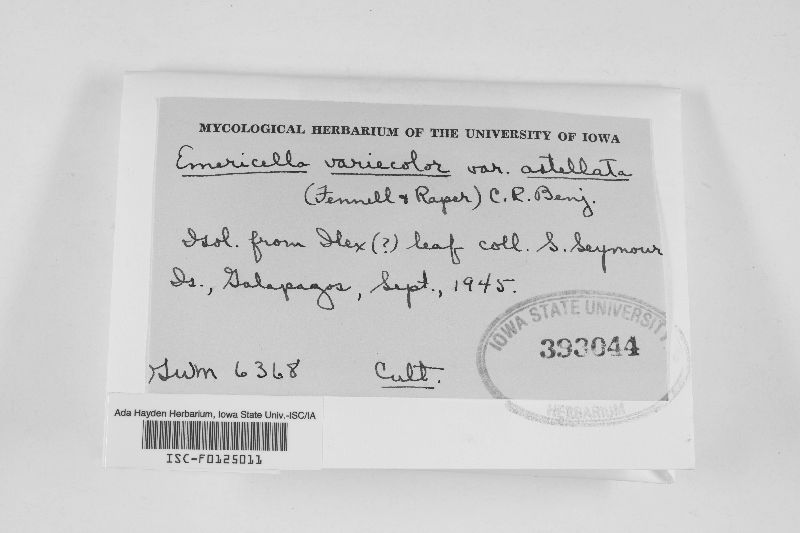 MYCOLOGICAL HERBARIUM OF THE UNIVERSITY OF IOWA
Emericella variecolor var. astellata
(Fennell & Raper) C. R. Benj.
Isol. from Ilex (?) leaf coll. S. Seymour
Is., Galapagos, Sept., 1945.
GWM 6368 Cult.
IOWA STATE UNIVERSITY
393044
HERBARIUM
Ada Hayden Herbarium, Iowa State Univ.-ISC/IA
ISC-F0125011